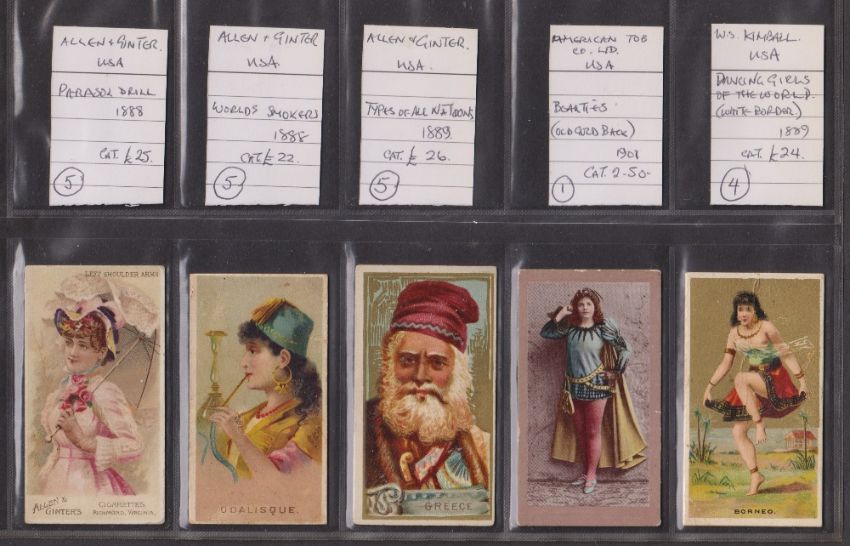 ALLEN & GINTER.
USA
PARASOL DRILL
1888
CAT. £25.
5
ALLEN & GINTER
USA.
WORLDS SMOKERS
1888
CAT. £22.
5
ALLEN & GINTER.
USA.
TYPES OF ALL NATIONS
1889
CAT. £26.
5
AMERICAN TOB
CO. LTD.
USA
BEAUTIES
(OLD GOLD BACK)
1901
CAT. 2-50-
1
W.S. KIMBALL.
USA
DANCING GIRLS
OF THE WORLD.
(WHITE BORDER)
1889
CAT. £24.
4
LEFT SHOULDER ARMS
ALLEN &
GINTER'S
CIGARETTES
RICHMOND, VIRGINIA.
ODALISQUE.
GREECE
BORNEO.